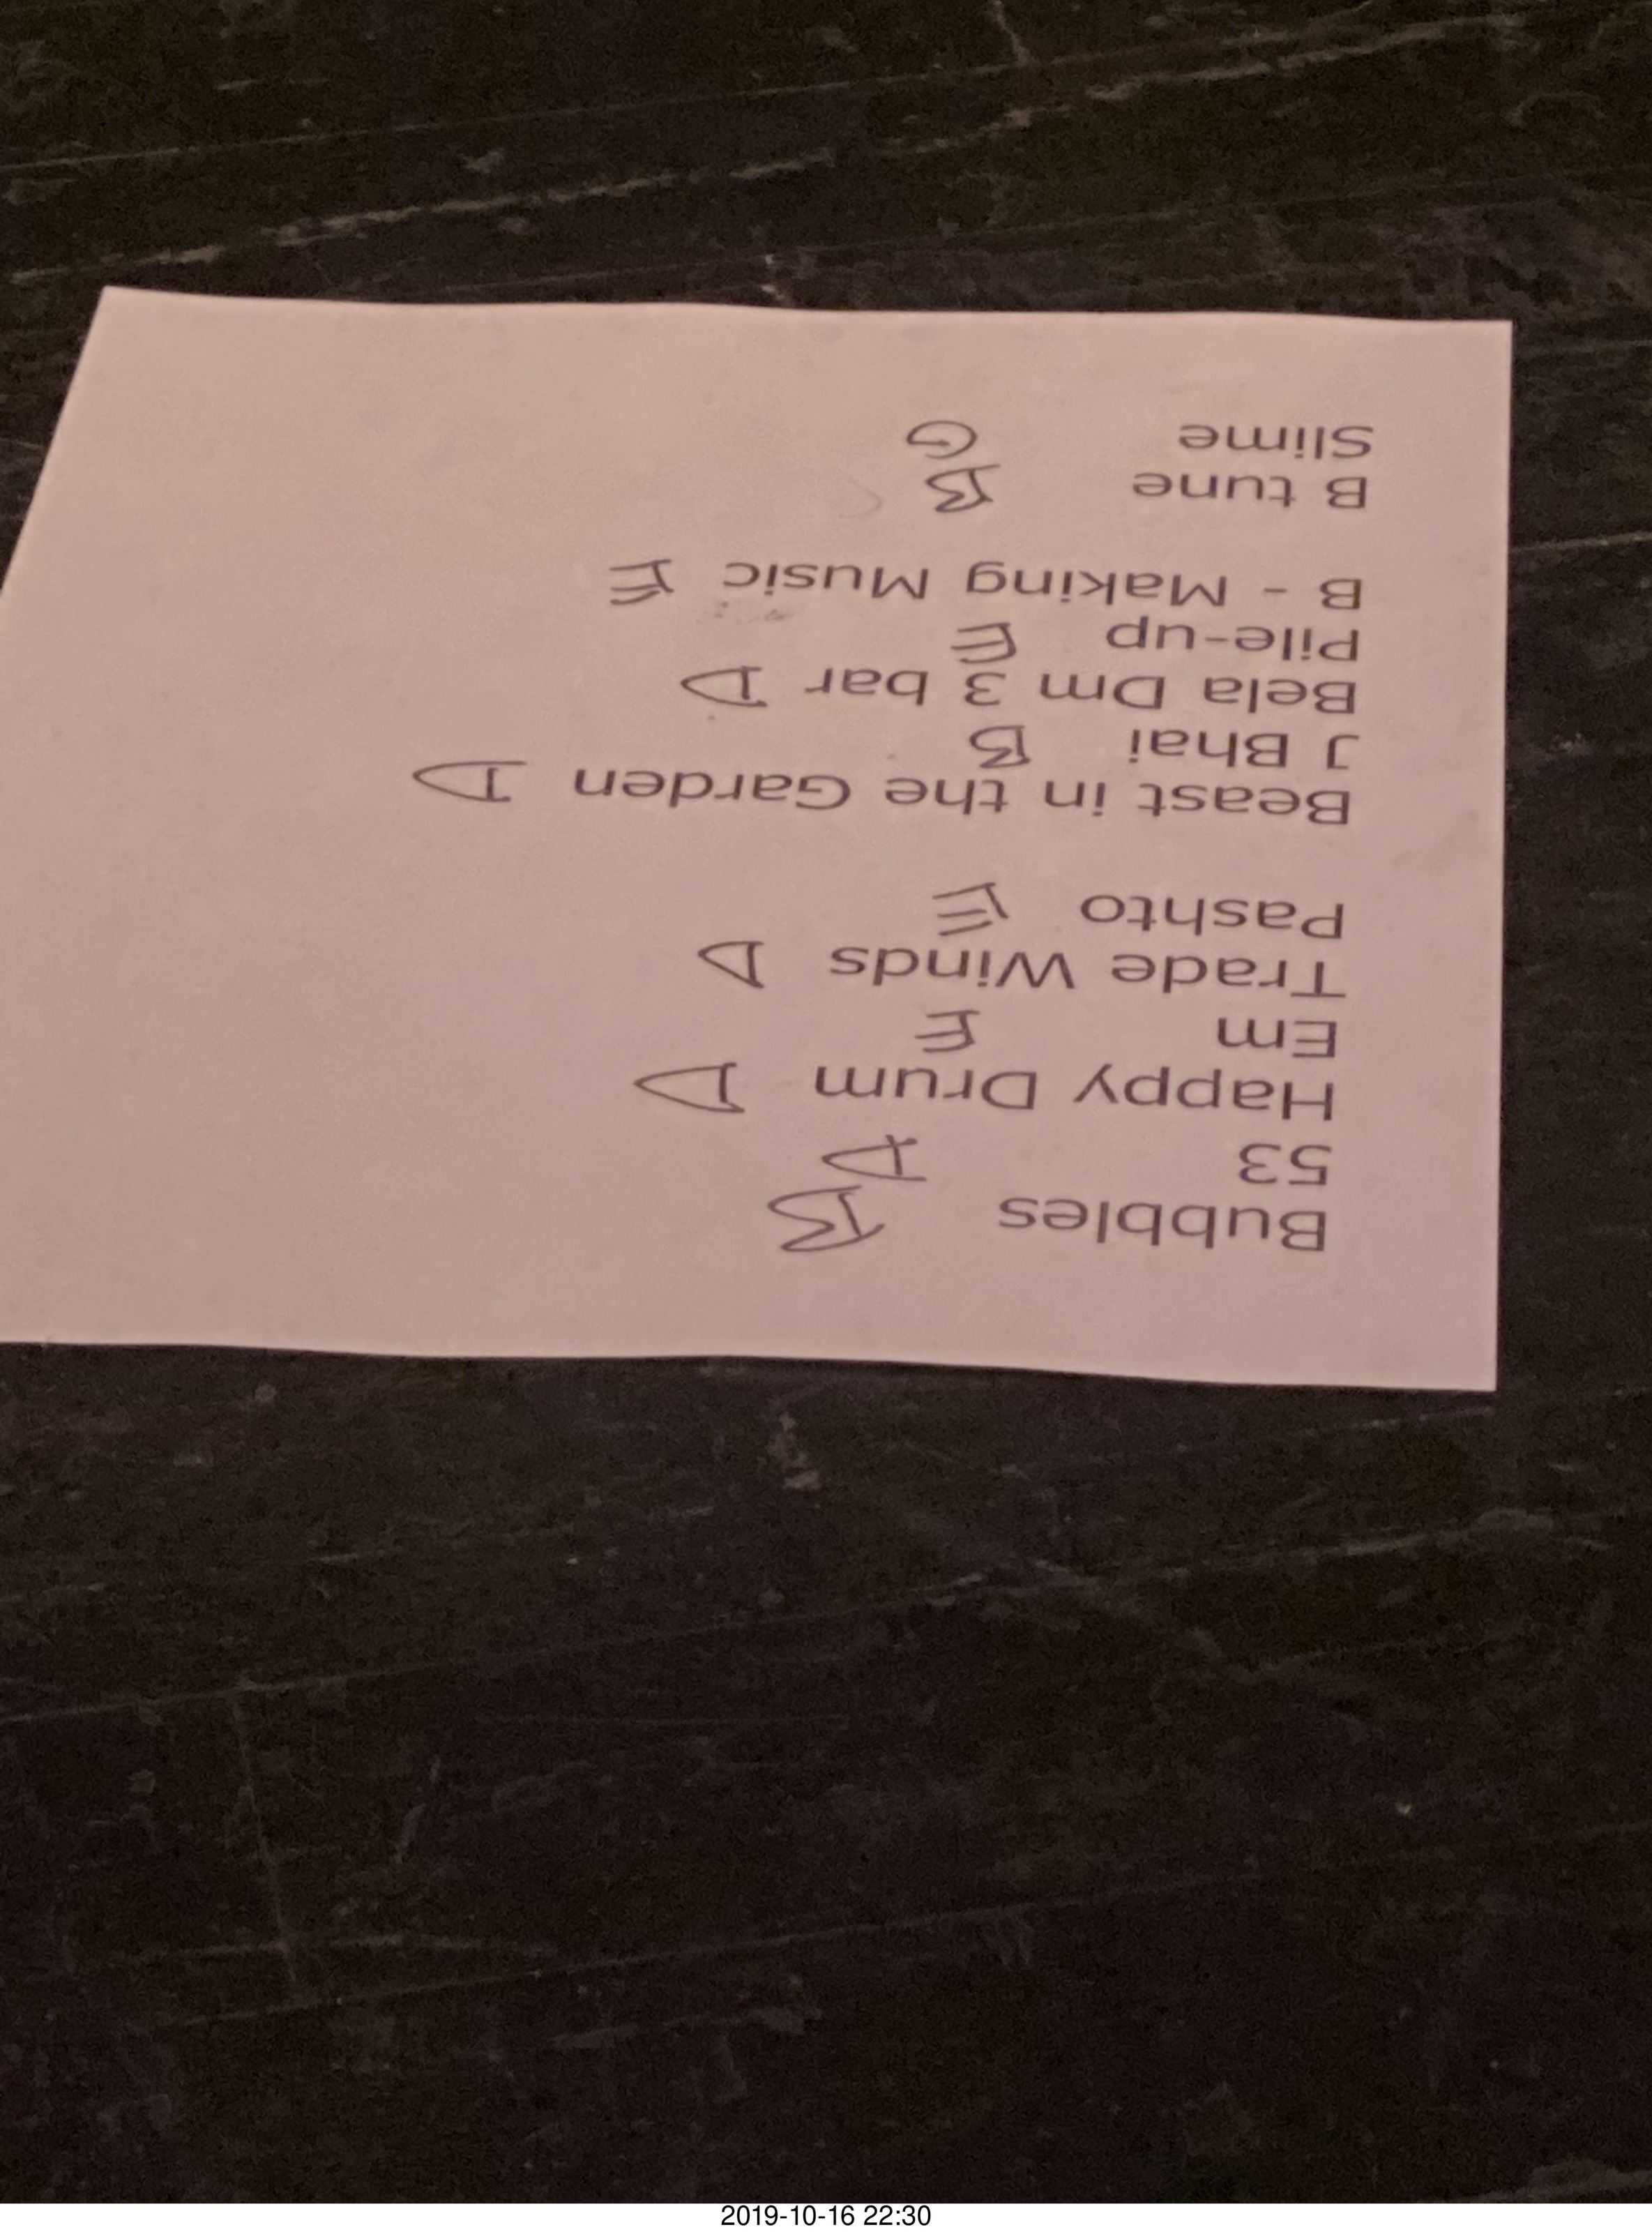 Bubbles B
53 D
Happy Drum D
Em E
Trade Winds D
Pashto E
Beast in the Garden D
J Bhai B
Bela Dm 3 bar D
Pile-up E
B - Making Music E
B tune B
Slime G
2019-10-16 22:30